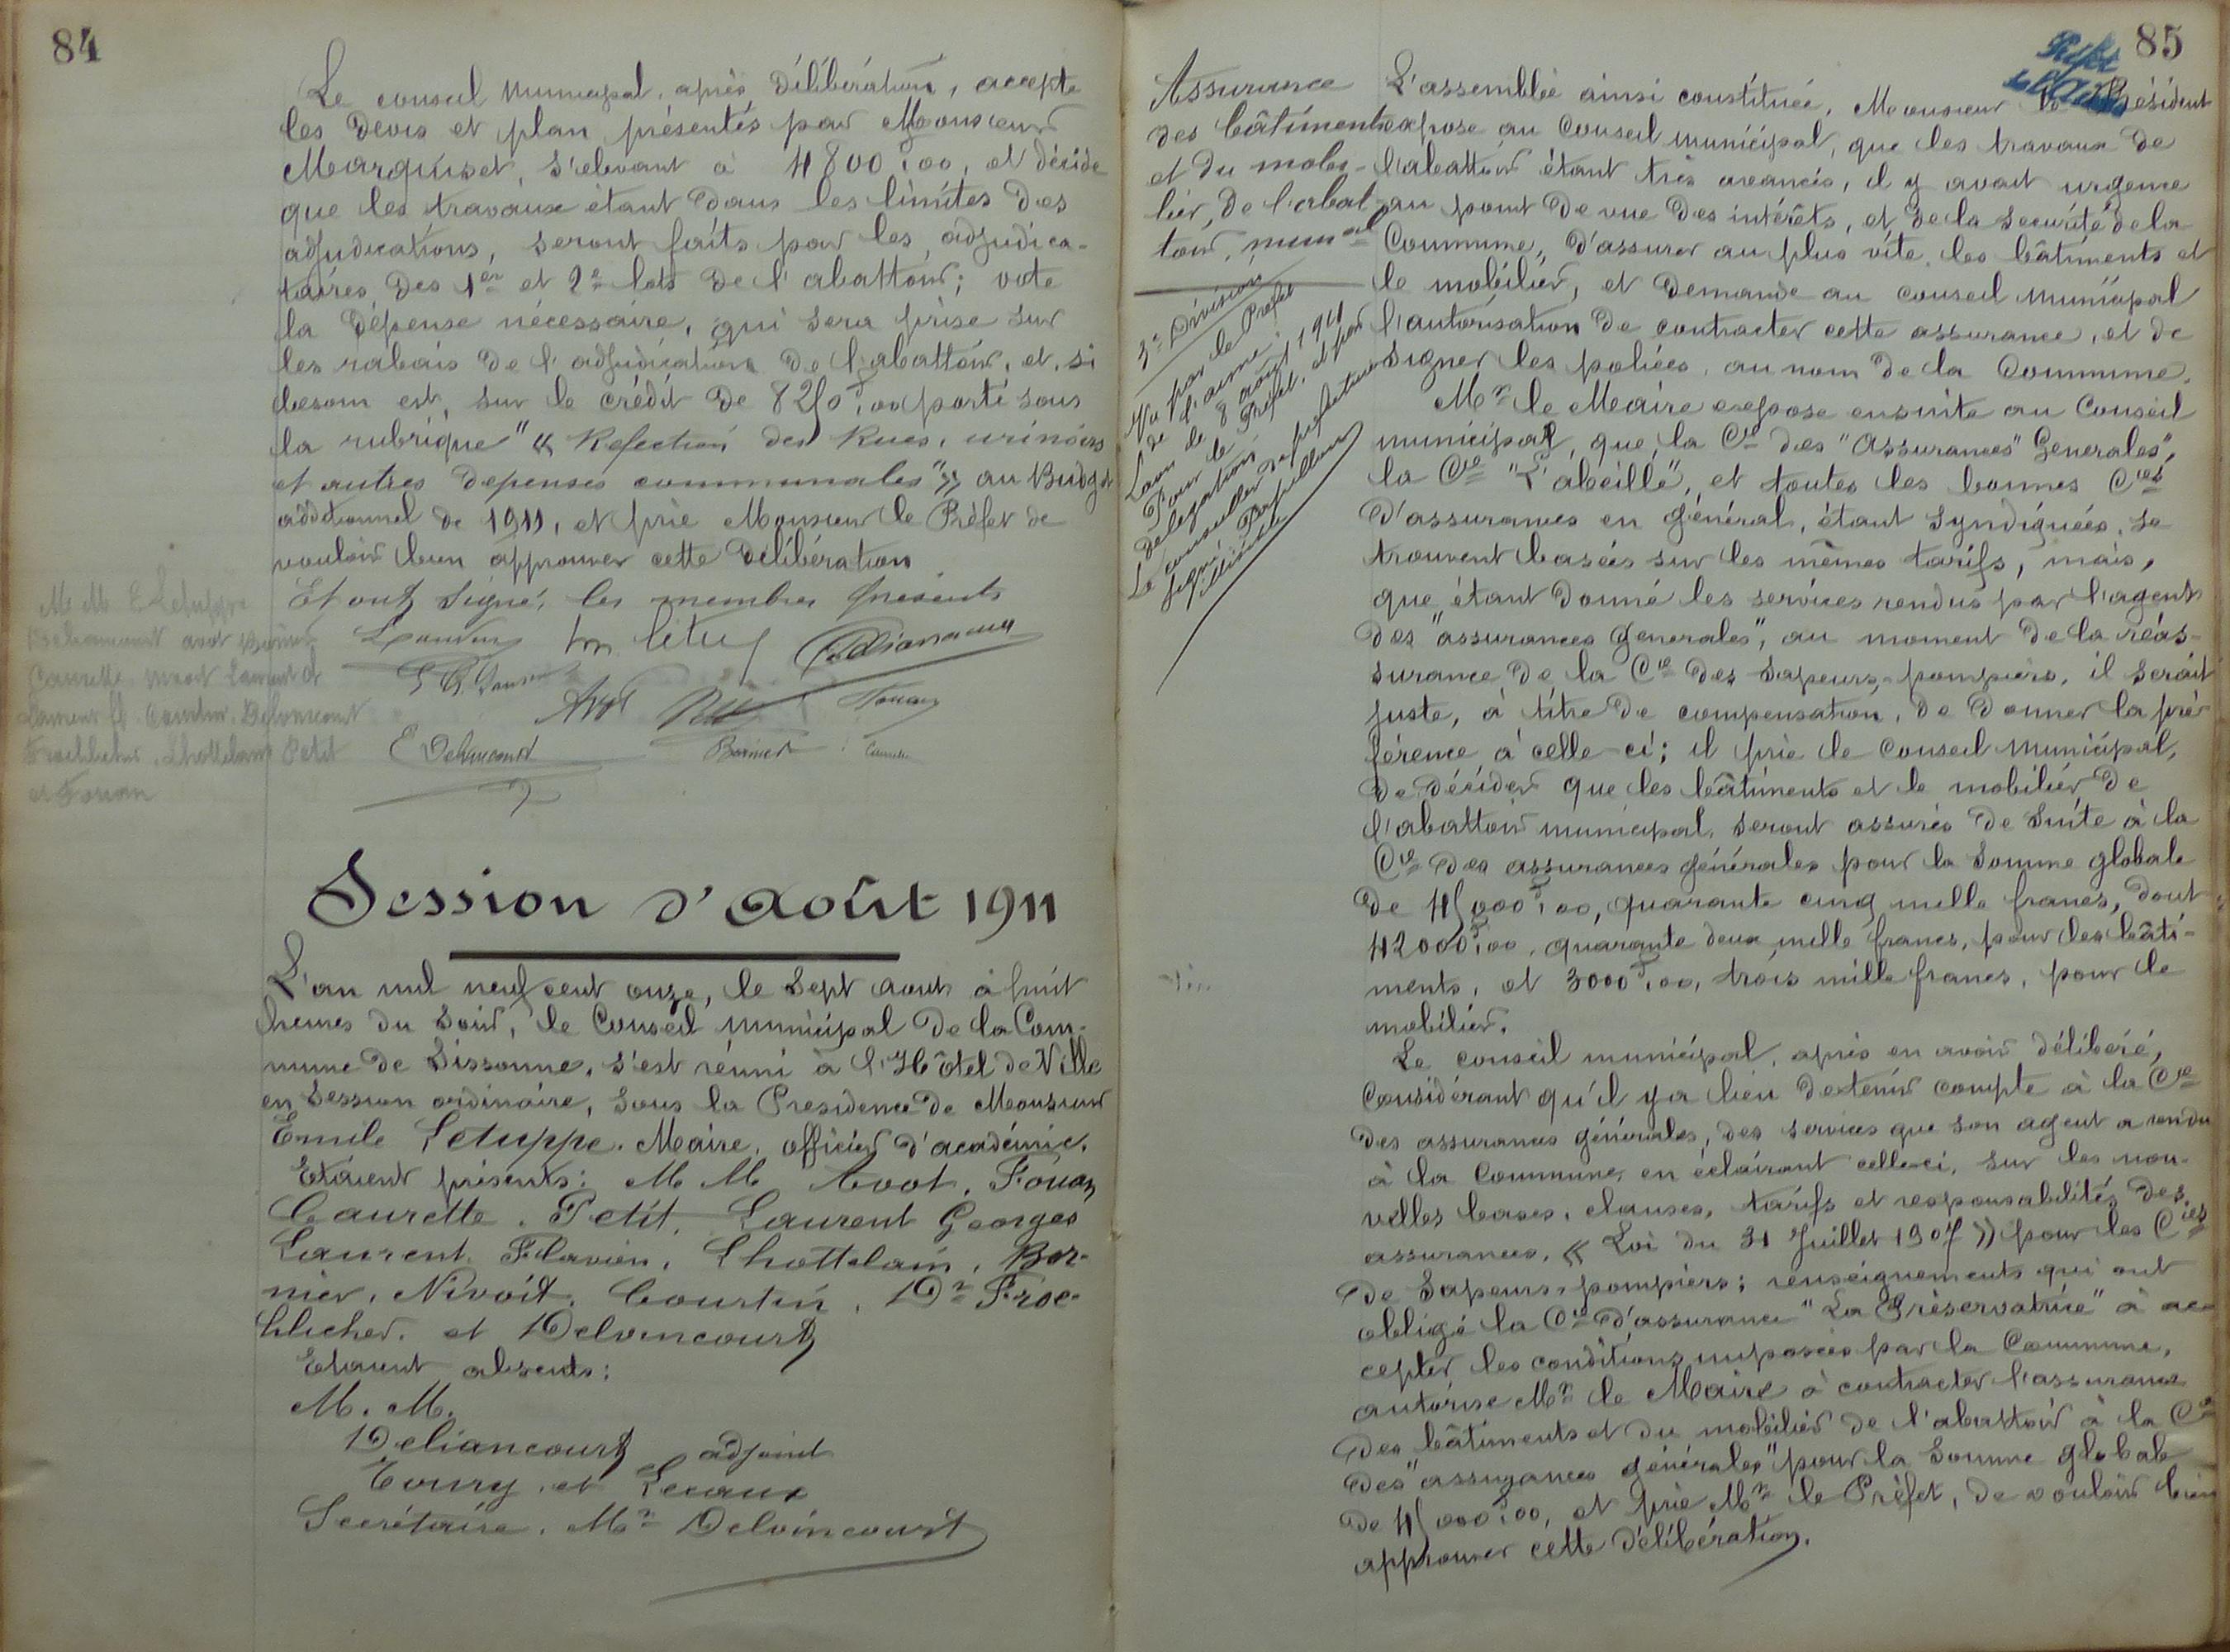 84
Le conseil municipal, après délibération, accepte
les devis et plan présentés par Monsieur
Marquiset, s'elevant à 4800f,00, et décide
que les travaux étant dans les limites des
adjudications, seront faits par les adjudica-
taires des 1er et 2e lots de l'abattoir; vote
la dépense nécessaire, qui sera prise sur
les rabais de l'adjudication de l'abattoir, et, si
besoin est, sur le crédit de 8250f,00 porté sous
la rubrique "« Refection des Rues, urinoirs
et autres depenses communales"» au Budget
additionnel de 1911, et prie Monsieur le Préfet de
vouloir bien approuver cette délibération
Et ont signé, les membres présents
M M E Letuppe
Deliancourt avot
Caurette Laurent
Laurent fl. Courtin. Delvincourt
Froehlicher. Lhottelain Petit
et Fouan
Avot
Fouan
E Delvincourt
Session d'Août 1911
L'an mil neuf cent onze, le Sept Aout à huit
heures du Soir, le Conseil municipal de la Com-
mune de Sissonne, s'est réuni à l'Hôtel de Ville
en Session ordinaire, sous la Presidence de Monsieur
Emile Letuppe. Maire, officier d'académie.
Etaient présents: M M Avot, Fouan
Caurette. Petit. Laurent Georges
Laurent Flavien, Lhottelain, Bor-
nier. Nivoit. Courtin. Dr Froe-
hlicher. et Delvincourt
Etaient absents:
M. M.
Deliancourt adjoint
Evury et Lecaux
Secrétaire. Mr Delvincourt
85
Assurance
des bâtiments
et du mobi-
lier, de l'abat-
toir, munal
3e Division
Vu par le Préfet
de l'aisne:
Laon le 8 août 1911
Pour le Préfet, et par
délégation
Le conseiller de préfecture
signé:
illisible
L'assemblée ainsi constituée, Monsieur le Président
expose au Conseil municipal, que les travaux de
l'abattoir étant très avancés, il y avait urgence
au point de vue des intérêts, et de la securité de la
Commune, d'assurer au plus vite, les bâtiments et
le mobilier, et demande au conseil municipal
l'autorisation de contracter cette assurance, et de
signer les polices, au nom de la Commune.
Mr le Maire expose ensuite au Conseil
municipal, que la Cie des "Assurances" Generales",
la Cie "L'abeille", et toutes les bonnes Cies
d'assurances en général, étant syndiquées, se
trouvent basées sur les mêmes tarifs, mais,
que étant donné les services rendus par l'agent
des "assurances generales", au moment de la réas-
surance de la Cie des Sapeurs-pompiers, il serait
juste, à titre de compensation, de donner la pré-
férence à celle-ci; il prie le Conseil Municipal,
de décider que les bâtiments et le mobilier de
l'abattoir municipal, seront assurés de suite à la
Cie des assurances générales pour la Somme globale
de 45000f,00, quarante cinq mille francs, dont
42000f,00, quarante deux mille francs, pour les bâti-
ments, et 3000f,00, trois mille francs, pour le
mobilier.
Le conseil municipal, après en avoir délibéré,
Considérant qu'il y a lieu de tenir compte à la Cie
des assurances générales, des services que son agent a rendu
à la Commune, en éclairant celle-ci, sur les nou-
velles bases, clauses, tarifs et responsabilités des
assurances, « Loi du 31 Juillet 1907 » pour les Cies
de Sapeurs-pompiers; renseignements qui ont
obligé la Cie d'assurance "La Préservatrice" à ac-
cepter les conditions imposées par la Commune,
autorise Mr le Maire à contracter l'assurance
des bâtiments et du mobilier de l'abattoir à la Cie
des "assurances générales" pour la Somme globale
de 45000f,00, et prie Mr le Préfet, de vouloir bien
approuver cette délibération.